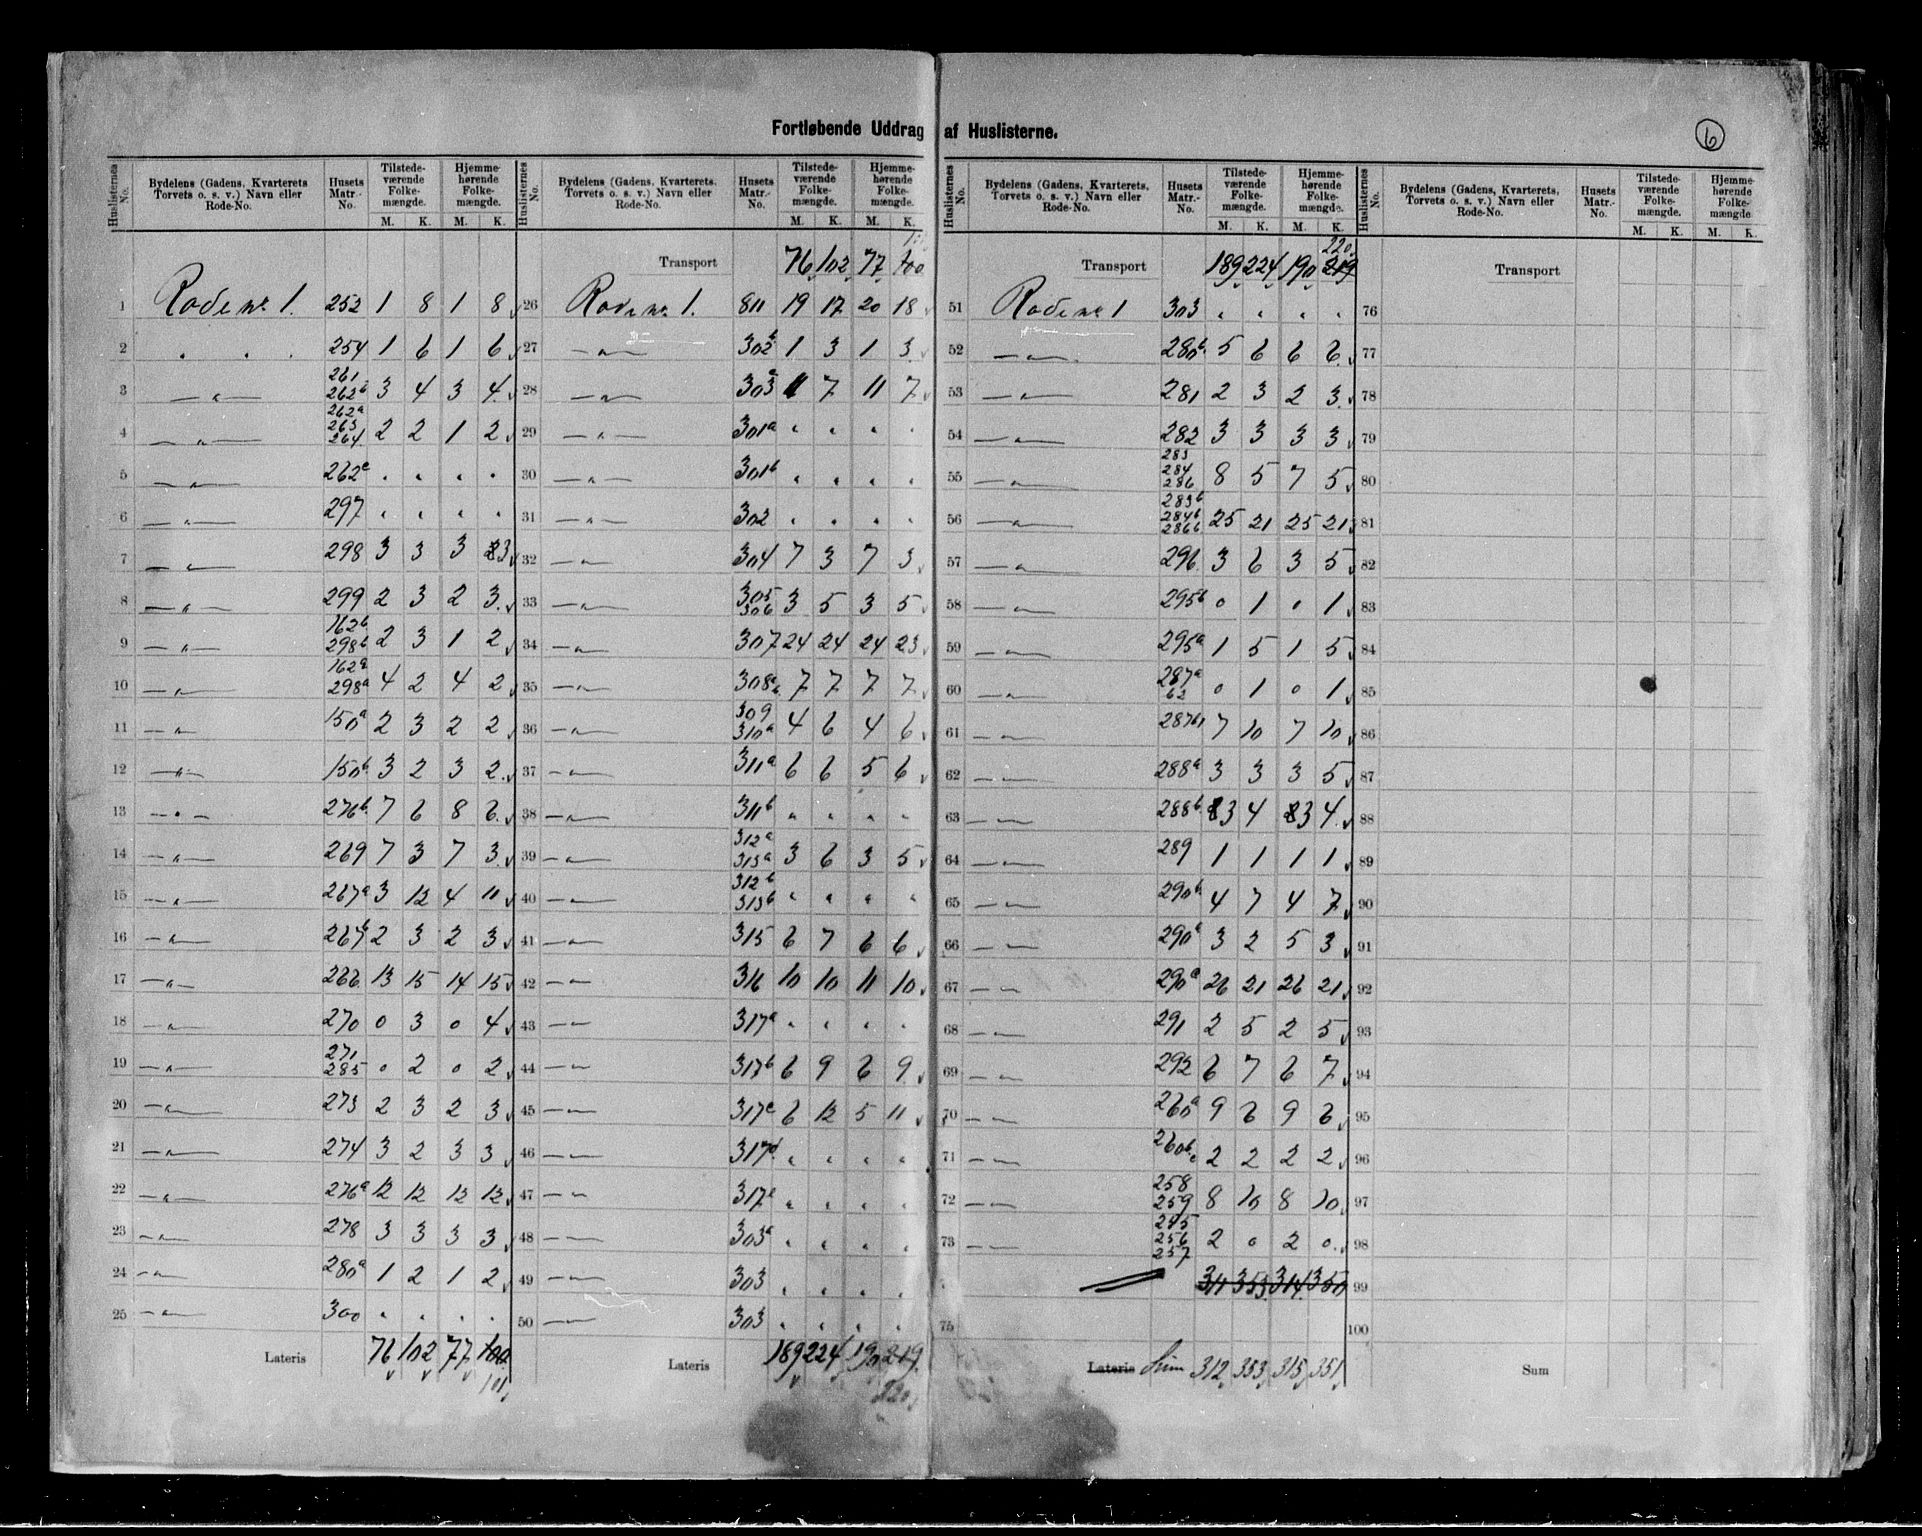 Fortløbende Uddrag af Huslisterne.
6
Huslisternes No. Bydelens (Gadens, Kvarterets Torvets o. s. v.) Navn eller Rode-No. Husets Matr.-No. Tilstedeværende Folkemængde. M. K. Hjemmehørende Folkemængde. M. K.
1 Rode nr 1. 253 1 8 1 8
2 " " " 254 1 6 1 6
3 — " — 261 262b 3 4 3 4
4 — " — 262a 263 264 2 2 1 2
5 — " — 262c " " " "
6 — " — 297 " " " "
7 — " — 298 3 3 3 3
8 — " — 299 2 3 2 3
9 — " — 162b 298b 2 3 1 2
10 — " — 162a 298a 4 2 4 2
11 — " — 150a 2 3 2 2
12 — " — 150b 3 2 3 2
13 — " — 276b 7 6 8 6
14 — " — 269 7 3 7 3
15 — " — 267a 3 12 4 11
16 — " — 267b 2 3 2 3
17 — " — 266 13 15 14 15
18 — " — 270 0 3 0 4
19 — " — 271 285 0 2 0 2
20 — " — 273 2 3 2 3
21 — " — 274 3 2 3 3
22 — " — 276a 12 12 12 12
23 — " — 278 3 3 3 3
24 — " — 280a 1 2 1 2
25 — " — 300 " " " "
Lateris 76 102 77 100 101
Huslisternes No. Bydelens (Gadens, Kvarterets, Torvets o. s. v.) Navn eller Rode-No. Husets Matr.-No. Tilstedeværende Folkemængde. M. K. Hjemmehørende Folkemængde. M. K.
Transport 76 102 77 100
26 Rode nr 1. 811 19 17 20 18
27 — " — 302b 1 3 1 3
28 — " — 303a 11 7 11 7
29 — " — 301a " " " "
30 — " — 301b " " " "
31 — " — 302 " " " "
32 — " — 304 7 3 7 3
33 — " — 305 306 3 5 3 5
34 — " — 307 24 24 24 23
35 — " — 308a 7 7 7 7
36 — " — 309 310a 4 6 4 6
37 — " — 311a 6 6 5 6
38 — " — 311b " " " "
39 — " — 312a 313a 3 6 3 5
40 — " — 312b 313b " " " "
41 — " — 315 6 7 6 6
42 — " — 316 10 10 11 10
43 — " — 317a " " " "
44 — " — 317b 6 9 6 9
45 — " — 317c 6 12 5 11
46 — " — 317d " " " "
47 — " — 317e " " " "
48 — " — 303a " " " "
49 — " — 303 " " " "
50 — " — 303 " " " "
Lateris 189 224 190 219 220
Huslisternes No. Bydelens (Gadens, Kvarterets, Torvets o. s. v.) Navn eller Rode-No. Husets Matr.-No. Tilstedeværende Folkemængde. M. K. Hjemmehørende Folkemængde. M. K.
Transport 189 224 190 219 220
51 Rode nr 1 303 " " " "
52 — " — 280b 5 6 6 6
53 — " — 281 2 3 2 3
54 — " — 282 3 3 3 3
55 — " — 283 284 286 8 5 7 5
56 — " — 283b 284b 286b 25 21 25 21
57 — " — 296 3 6 3 5
58 — " — 295b 0 1 0 1
59 — " — 295a 1 5 1 5
60 — " — 287a 62 0 1 0 1
61 — " — 287b 7 10 7 10
62 — " — 288a 3 3 3 5
63 — " — 288b 3 4 3 4
64 — " — 289 1 1 1 1
65 — " — 290b 4 7 4 7
66 — " — 290c 3 2 5 3
67 — " — 290a 26 21 26 21
68 — " — 291 2 5 2 5
69 — " — 292 6 7 6 7
70 — " — 260a 9 6 9 6
71 — " — 260b 2 2 2 2
72 — " — 258 259 8 10 8 10
73 — " — 255 256 257 2 0 2 0
311 353 314 350
75
Lateris Sum 312 353 315 351
Huslisternes No. Bydelens (Gadens, Kvarterets, Torvets o. s. v.) Navn eller Rode-No. Husets Matr.-No. Tilstedeværende Folkemængde. M. K. Hjemmehørende Folkemængde M. K.
Transport
76
77
78
79
80
81
82
83
84
85
86
87
88
89
90
91
92
93
94
95
96
97
98
99
100
Sum